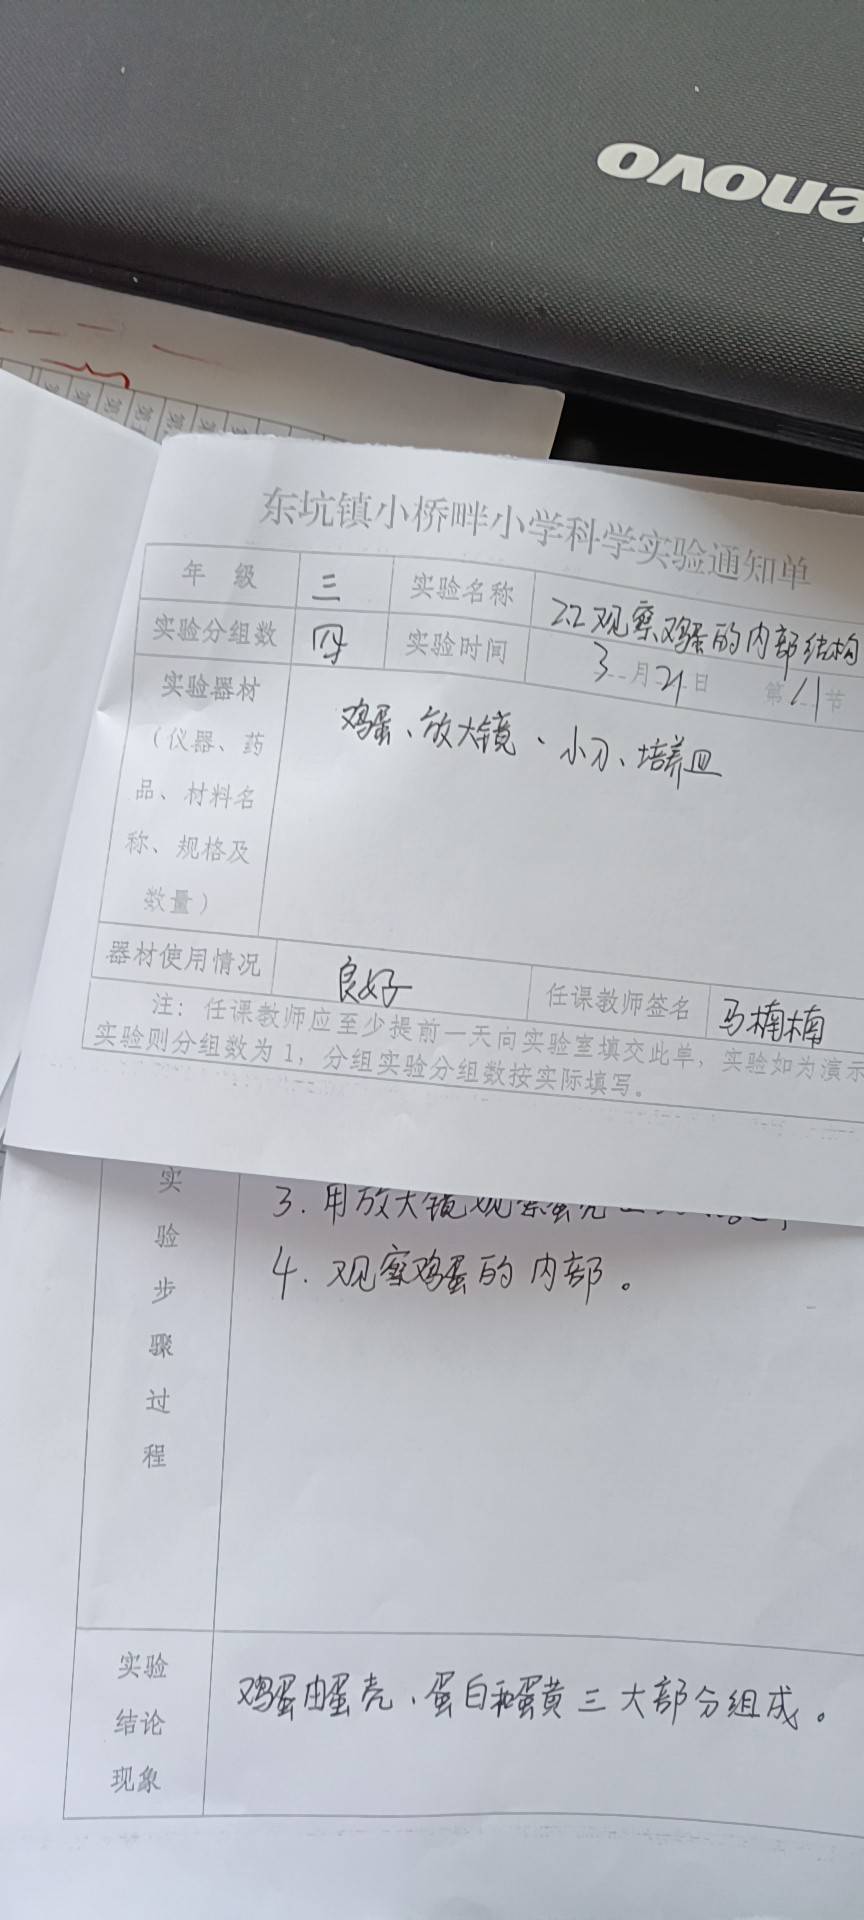 lenovo
东坑镇小桥畔小学科学实验通知单
年级 三 实验名称 2.2观察鸡蛋的内部结构
实验分组数 四 实验时间 3月21日 第11节
实验器材
(仪器、药
品、材料名
称、规格及
数量)
鸡蛋、放大镜、小刀、培养皿
器材使用情况 良好 任课教师签名 马楠楠
注：任课教师应至少提前一天向实验室填交此单，实验如为演示
实验则分组数为1，分组实验分组数按实际填写。
实验步骤过程
3.用放大镜观察蛋壳
4.观察鸡蛋的内部。
实验
结论
现象
鸡蛋由蛋壳、蛋白和蛋黄三大部分组成。